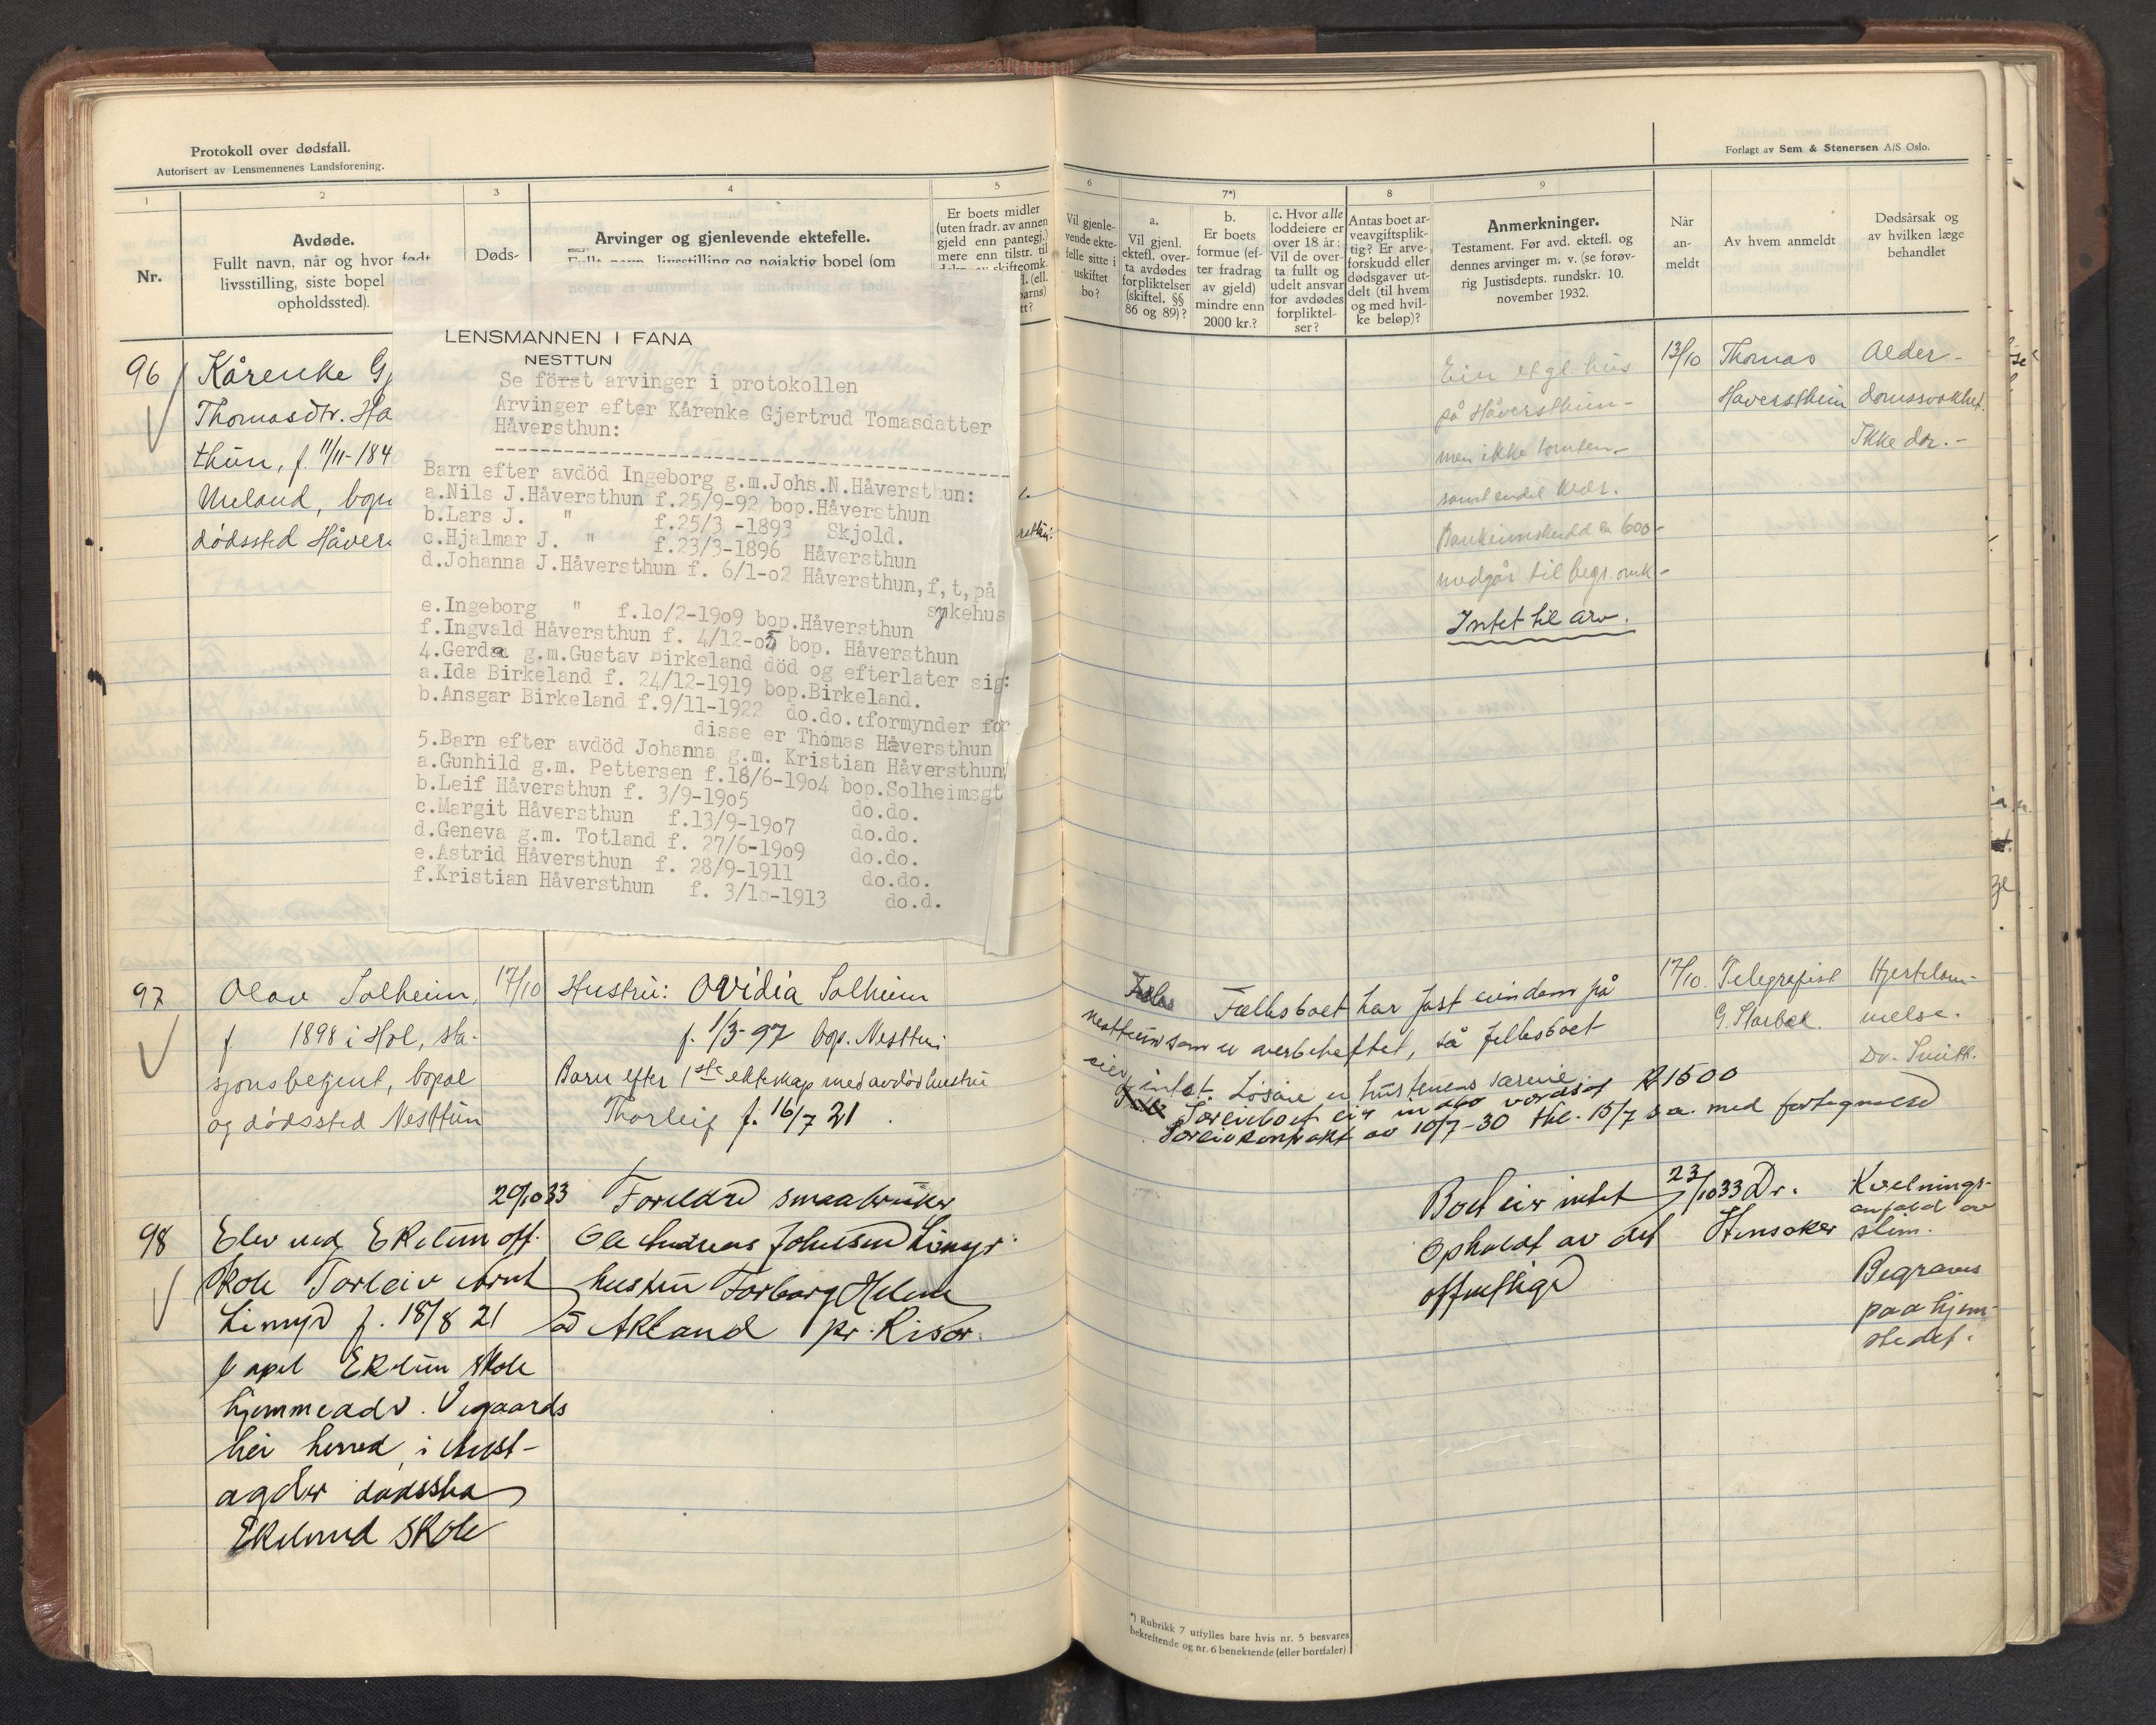 Protokoll over dødsfall.
Autorisert av Lensmennenes Landsforening.
Forlagt av Sem & Stenersen A/S Oslo.
1
2
3
4
5
6
7*)
8
9
Nr.
Avdøde.
Fullt navn, når og hvor født
livsstilling, siste bopel
opholdssted).
Døds-
Arvinger og gjenlevende ektefelle.
Fullt navn, livsstilling og nøiaktig bopel (om
Er boets midler
(uten fradr. av annen
gjeld enn pantegj.)
mere enn tilstr. til
skifteomk.
Vil gjenle-
vende ekte-
felle sitte i
uskiftet
bo?
a.
Vil gjenl.
ektef. over-
ta avdødes
forpliktelser
(skiftel. §§
86 og 89)?
b.
Er boets
formue (ef-
ter fradrag
av gjeld)
mindre enn
2000 kr.?
c. Hvor alle
loddeiere er
over 18 år:
Vil de over-
ta fullt og
udelt ansvar
for avdødes
forpliktel-
ser?
Antas boet ar-
veavgiftsplik-
tig? Er arve-
forskudd eller
dødsgaver ut-
delt (til hvem
og med hvil-
ke beløp)?
Anmerkninger.
Testament. Før avd. ektefl. og
dennes arvinger m. v. (se forøv-
rig Justisdepts. rundskr. 10.
november 1932.
Når
an-
meldt
Av hvem anmeldt
Dødsårsak og
av hvilken læge
behandlet
96
Kårenke Gj
Thomasdtr. Ha
thun, f. 11/11-184
Uneland, bopæ
dødssted Håver
LENSMANNEN I FANA
NESTTUN
Se först arvinger i protokollen
Arvinger efter Kårenke Gjertrud Tomasdatter
Håversthun:
Barn efter avdöd Ingeborg g.m.Johs.N.Håversthun:
a.Nils J.Håversthun f.25/9-92 bop.Håversthun
b.Lars J. " f.25/3 -1893 Skjold.
c.Hjalmar J. " f.23/3-1896 Håversthun
d.Johanna J.Håversthun f. 6/1-o2 Håversthun,f,t,på
sykehus
e.Ingeborg " f.1o/2-19o9 bop.Håversthun
f.Ingvald Håversthun f. 4/12-o5 bop. Håversthun
4.Gerda g.m.Gustav Birkeland död og efterlater sig:
a.Ida Birkeland f. 24/12-1919 bop.Birkeland.
b.Ansgar Birkeland f.9/11-1922 do.do.(formynder for
disse er Thomas Håversthun
5.Barn efter avdöd Johanna g.m. Kristian Håversthun
a.Gunhild g.m. Pettersen f.18/6-19o4 bop.Solheimsgt
b.Leif Håversthun f. 3/9-19o5 do.do.
c.Margit Håversthun f.13/9-19o7 do.do.
d.Geneva g.m. Totland f. 27/6-19o9 do.do.
e.Astrid Håversthun f. 28/9-1911 do.do.
f.Kristian Håversthun f. 3/1o-1913 do.d.
Eier et gl. hus
på Håversthun-
men ikke tomten-
samt endel klær.
Bankinnskudd ca 600-
medgår til begr. omk-
Intet til arv.
13/10
Thomas
Haversthun
Alder-
domssvakhet.
Ikke dr.-
97
Olav Solheim,
f 1898 i Hol, sta-
sjonsbetjent, bopæl
og dødssted Nesttun
17/10
Hustru: Ovidia Solheim
f. 1/3-97 bop. Nesttun
Barn efter 1ste ekteskap med avdød hustru
Thorleif f. 16/7 21
Fællesboet har fast eiendom på
Nesttun som er overbeheftet, så fellesboet
eier intet. Løsøre er hustruens særeie
Særeieboet eier indbo værdsat kr 1500
Særeiekontrakt av 10/7-30 thl. 15/7 s.a. med fortegnelse
17/10.
Telegrafist
G. Starbek.
Hjertelam-
melse.
Dr. Smith.
98
Elev ved Ekelun off.
skole Torleiv Arnt
Limyr f. 18/8 21
bopel Ekelun skole
hjemmeadr. Vegaards
hei herred i Aust-
agder dødssted
Ekelund skole
20/10 33
Foreldre smaabruker
Ole Andreas Johnsen Limyr
hustru Torborg Helene
Akland pr. Risør.
Boet eier intet
Opholdt av det
offentlige
23/10 33
Dr.
Hinsaker
Kvelnings-
anfald av
slim.
Begraves
paa hjem-
stedet.
*) Rubrikk 7 utfylles bare hvis nr. 5 besvares
bekreftende og nr. 6 benektende (eller bortfaller)